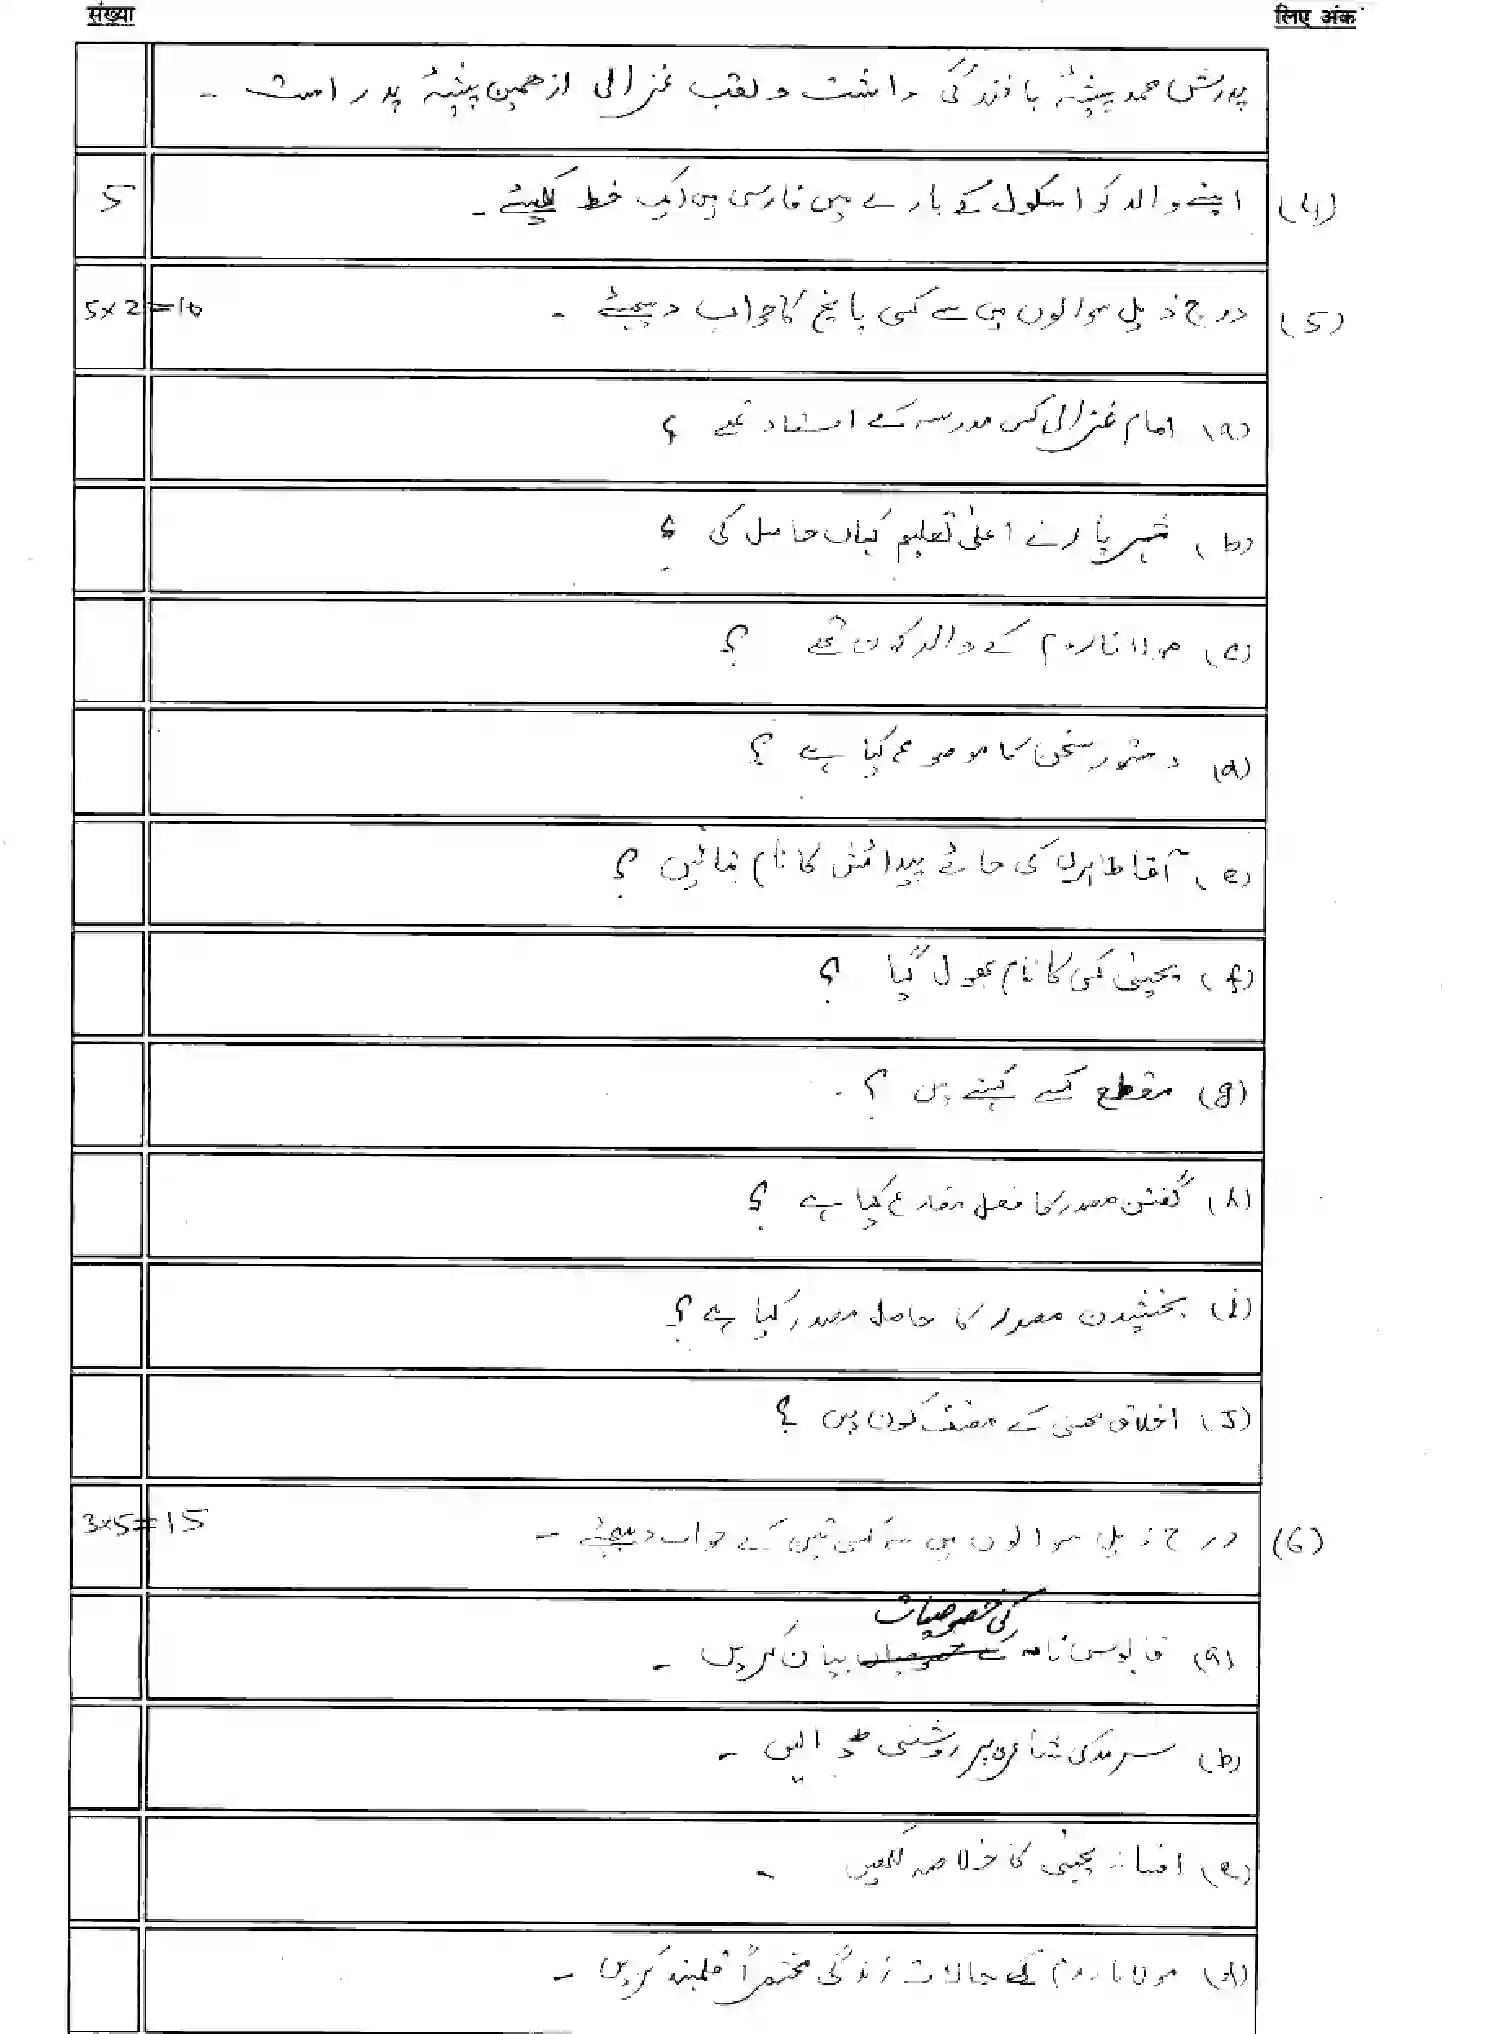 संख्या
लिए अंक
پدرش محمد پیشۂ بافندگی داشت و لقب غزالی از همین پیشۂ پدر است ۔
(4) اپنے والد کو اسکول کے بارے میں فارسی میں ایک خط لکھیئے ۔ 5
(5) درج ذیل سوالوں میں سے کسی پانچ کا جواب دیجیئے ۔ 5x2=10
(a) امام غزالی کس مدرسہ کے استاد تھے ؟
(b) شہریار نے اعلیٰ تعلیم کہاں حاصل کی ؟
(c) مولانا روم کے والد کون تھے ؟
(d) دستور سخن کا موضوع کیا ہے ؟
(e) آقا طاہر کی جائے پیدائش کا نام بتائیں ؟
(f) یحییٰ کس کا نام بھول گیا ؟
(g) مقطع کسے کہتے ہیں ؟
(h) گفتن مصدر کا فعل مضارع کیا ہے ؟
(i) بخشیدن مصدر کا حاصل مصدر کیا ہے ؟
(J) اخلاق محسنی کے مصنف کون ہیں ؟
(6) درج ذیل سوالوں میں سے کسی تین کے جواب دیجیئے ۔ 3x5=15
(a) قابوس نامہ کی خصوصیات بیان کریں ۔
(b) سرمد کی شاعری پر روشنی ڈالیں ۔
(c) افسانہ یحییٰ کا خلاصہ لکھیں ۔
(d) مولانا روم کے حالات زندگی مختصراً قلمبند کریں ۔